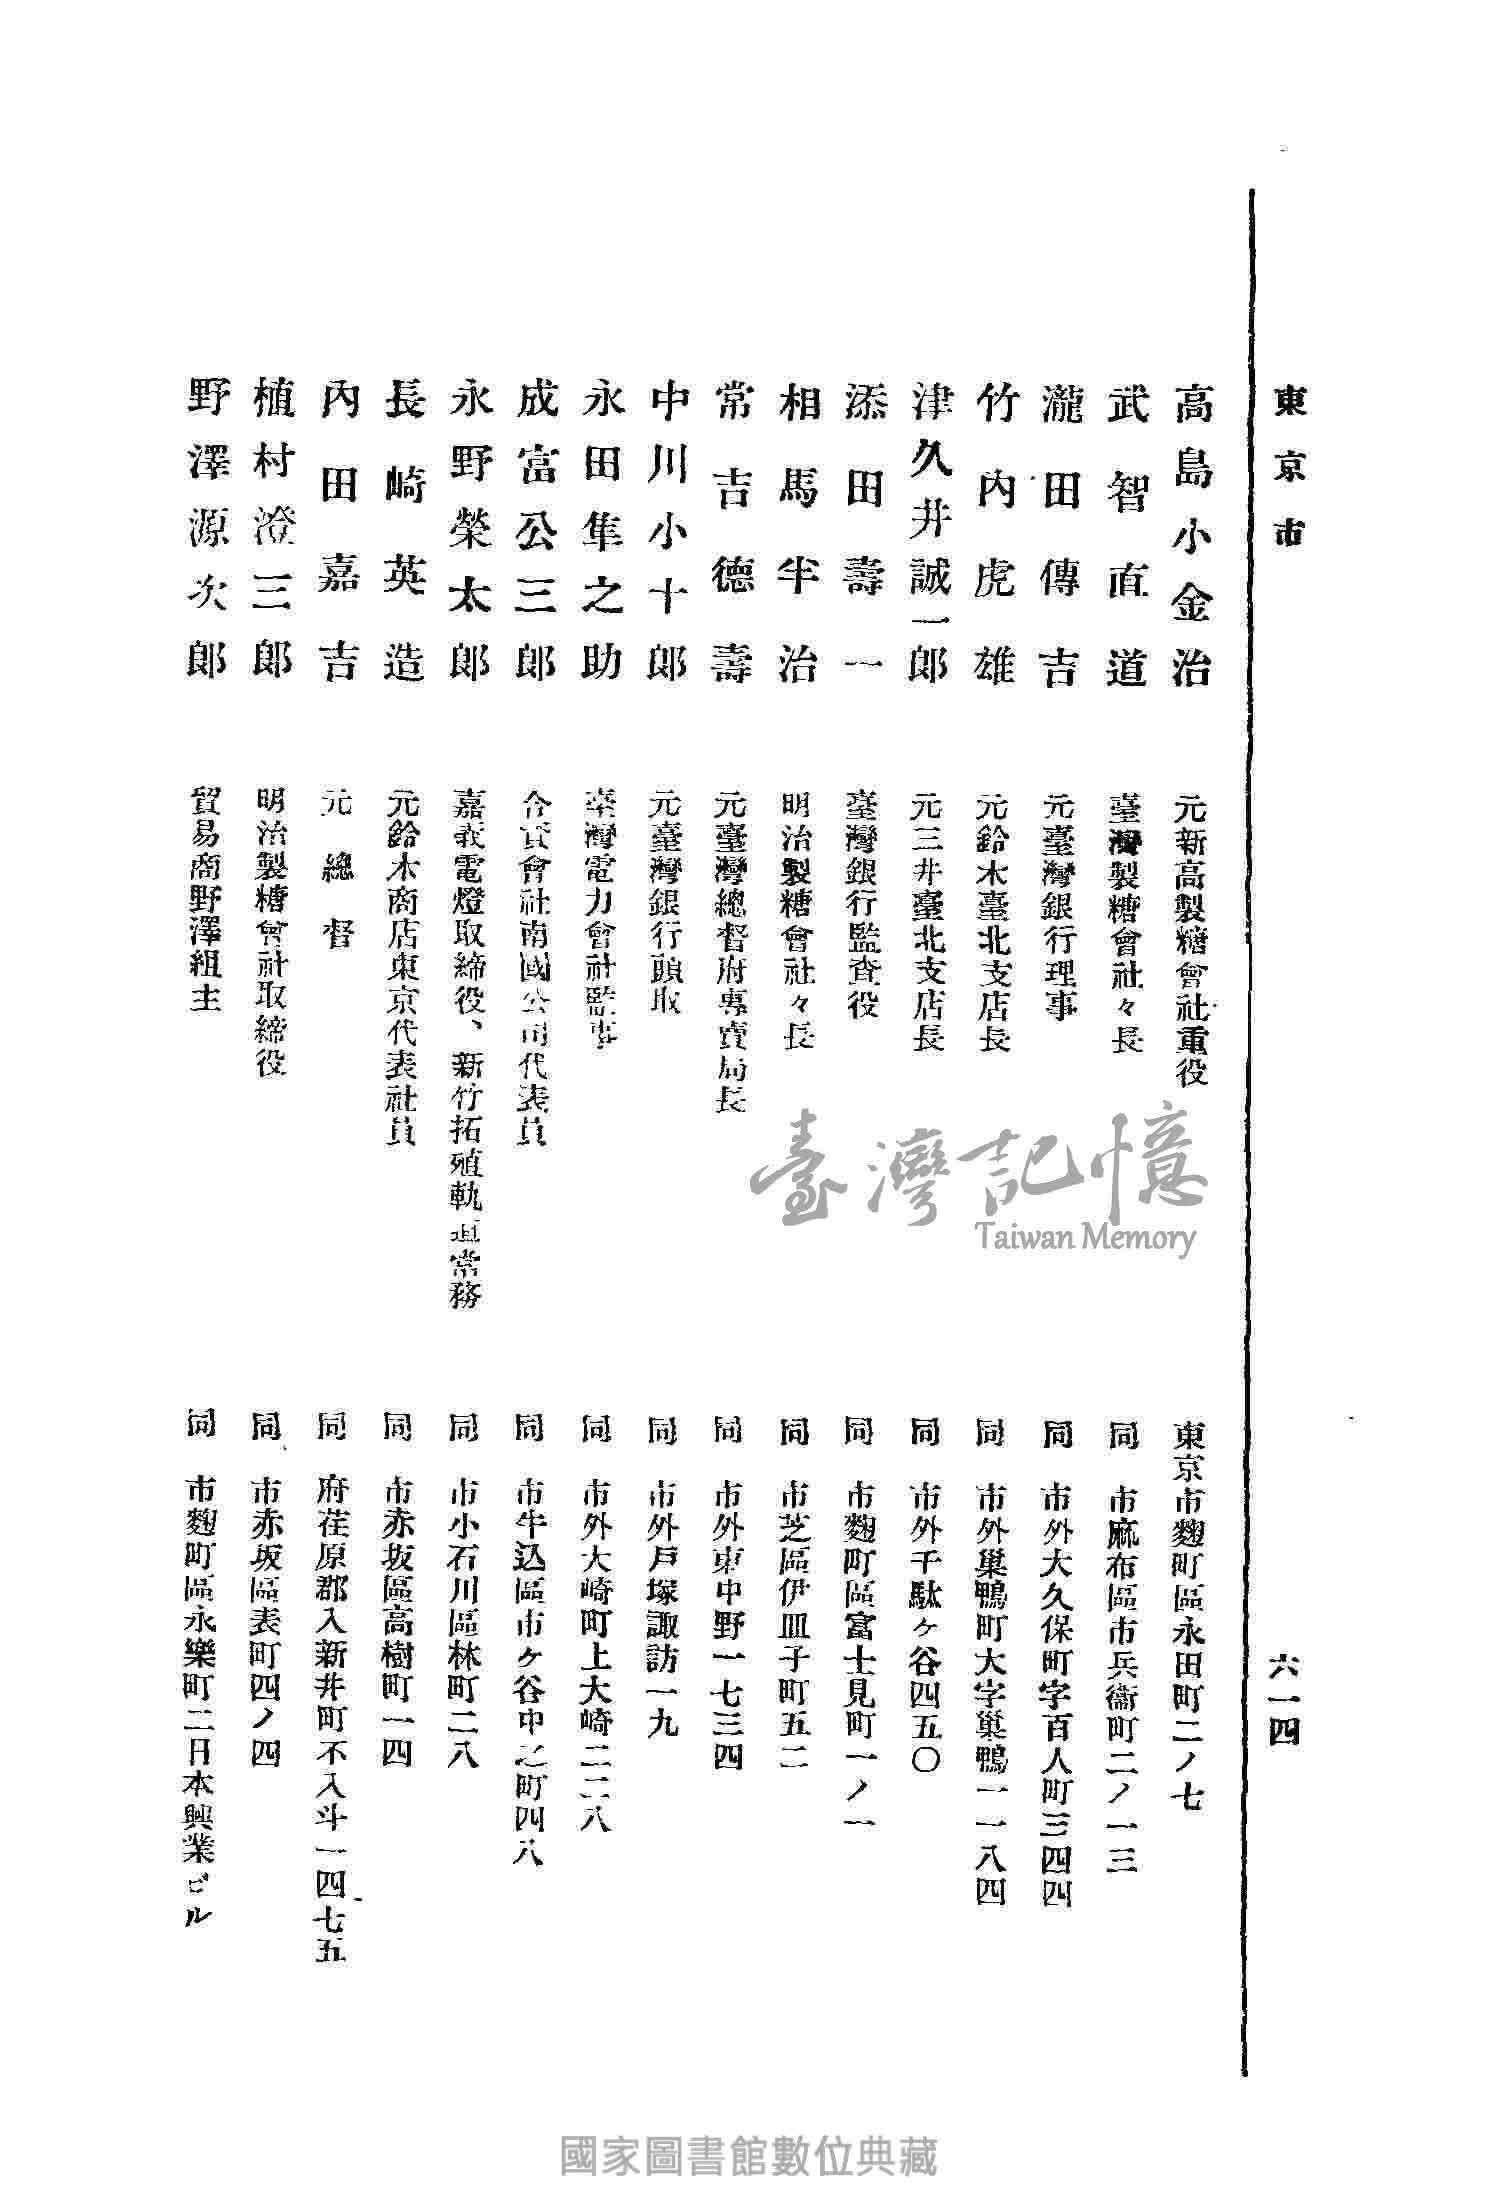 東京市
六一四
高島小金治 元新高製糖會社重役 東京市麴町區永田町二ノ七
武智直道 臺灣製糖會社々長 同 市麻布區市兵衞町二ノ一三
瀧田傳吉 元臺灣銀行理事 同 市外大久保町字百人町三四四
竹內虎雄 元鈴木臺北支店長 同 市外巢鴨町大字巢鴨一一八四
津久井誠一郎 元三井臺北支店長 同 市外千駄ヶ谷四五〇
添田壽一 臺灣銀行監査役 同 市麴町區富士見町一ノ一
相馬半治 明治製糖會社々長 同 市芝區伊皿子町五二
常吉德壽 元臺灣總督府專賣局長 同 市外東中野一七三四
中川小十郎 元臺灣銀行頭取 同 市外戶塚諏訪一九
永田隼之助 臺灣電力會社監事 同 市外大崎町上大崎二二八
成富公三郎 合資會社南國公司代表員 同 市牛込區市ヶ谷中之町四八
永野榮太郎 嘉義電燈取締役、新竹拓殖軌道常務 同 市小石川區林町二八
長崎英造 元鈴木商店東京代表社員 同 市赤坂區高樹町一四
內田嘉吉 元總督 同 府荏原郡入新井町不入斗一四七五
植村澄三郎 明治製糖會社取締役 同 市赤坂區表町四ノ四
野澤源次郎 貿易商野澤組主 同 市麴町區永樂町二日本興業ビル
臺灣記憶
Taiwan Memory
國家圖書館數位典藏